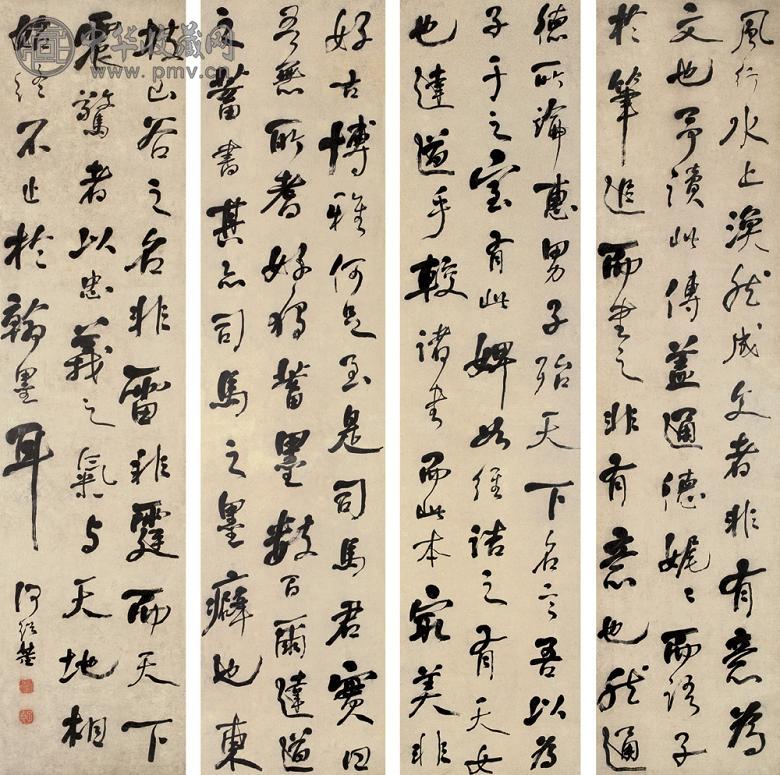 風行水上渙然成文者非有意為
文也予讀此傳蓋通德娓〻而語子
於筆追而書之非有意也然通
德所論惠男子殆天下名言吾以為
子于之室有此婢如經詰之有天女
也達道乎較諸書而此本最美非
好古博雅何足至是司馬君實曰
吾無所嗜好獨蓄墨數百爾達道
之蓄書其亦司馬之墨癖也東
坡山谷之名非雷非霆而天下
震驚者以忠義之氣与天地相
始終不止於翰墨耳
何紹基
中华收藏网
www.pmv.cn